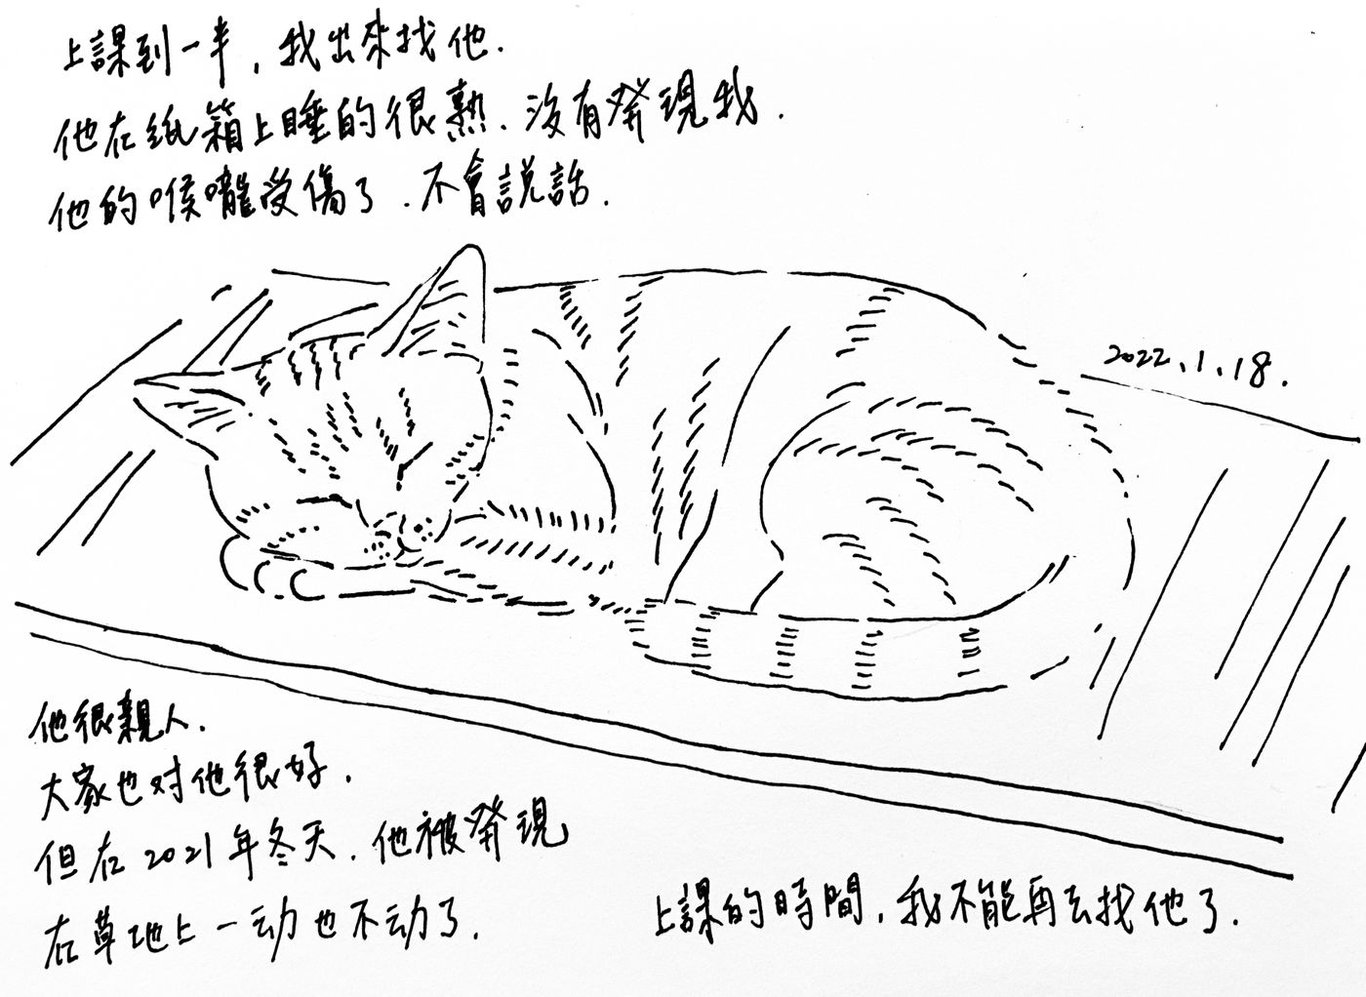 上課到一半，我出來找他.
他在纸箱上睡的很熟、沒有發現我.
他的喉嚨受傷了.不會説話.
2022.1.18.
他很親人.
大家也对他很好.
但在2021年冬天.他被發現
在草地上一动也不动了.
上課的時間，我不能再去找他了.